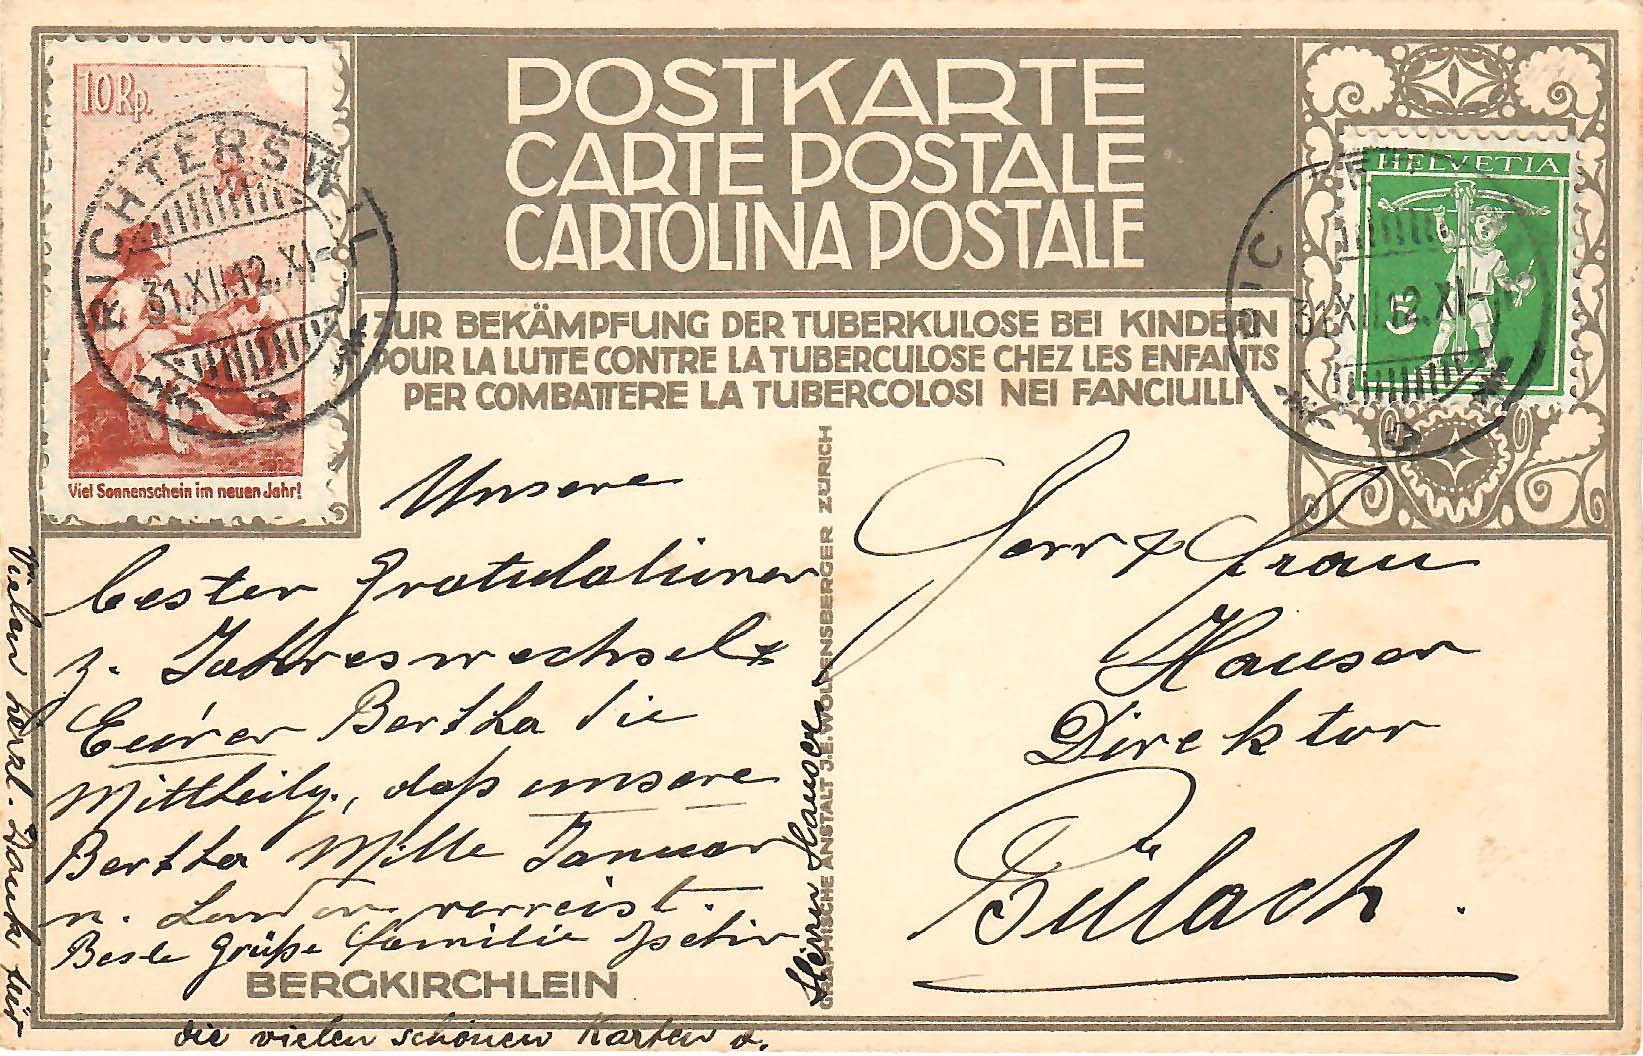 POSTKARTE
CARTE POSTALE
CARTOLINA POSTALE
ZUR BEKÄMPFUNG DER TUBERKULOSE BEI KINDERN
POUR LA LUTTE CONTRE LA TUBERCULOSE CHEZ LES ENFANTS
PER COMBATTERE LA TUBERCOLOSI NEI FANCIULLI
10 Rp.
Viel Sonnenschein im neuen Jahr!
RICHTERSWIL
31.XII.12.XI-
HELVETIA
5
RIC
31.XII.12.XI-
Unsere
besten Gratulationen
z. Jahreswechsel &
Eurer Bertha die
Mittheilg., daß unsere
Bertha Mitte Januar
n. London verreist.
Beste Grüße Familie
BERGKIRCHLEIN
Vielen herzl. Dank für
die vielen schönen Karten v.
Hauser
GRAPHISCHE ANSTALT J.E. WOLFENSBERGER ZÜRICH
Herr & Frau
Hauser
Direktor
Bülach.